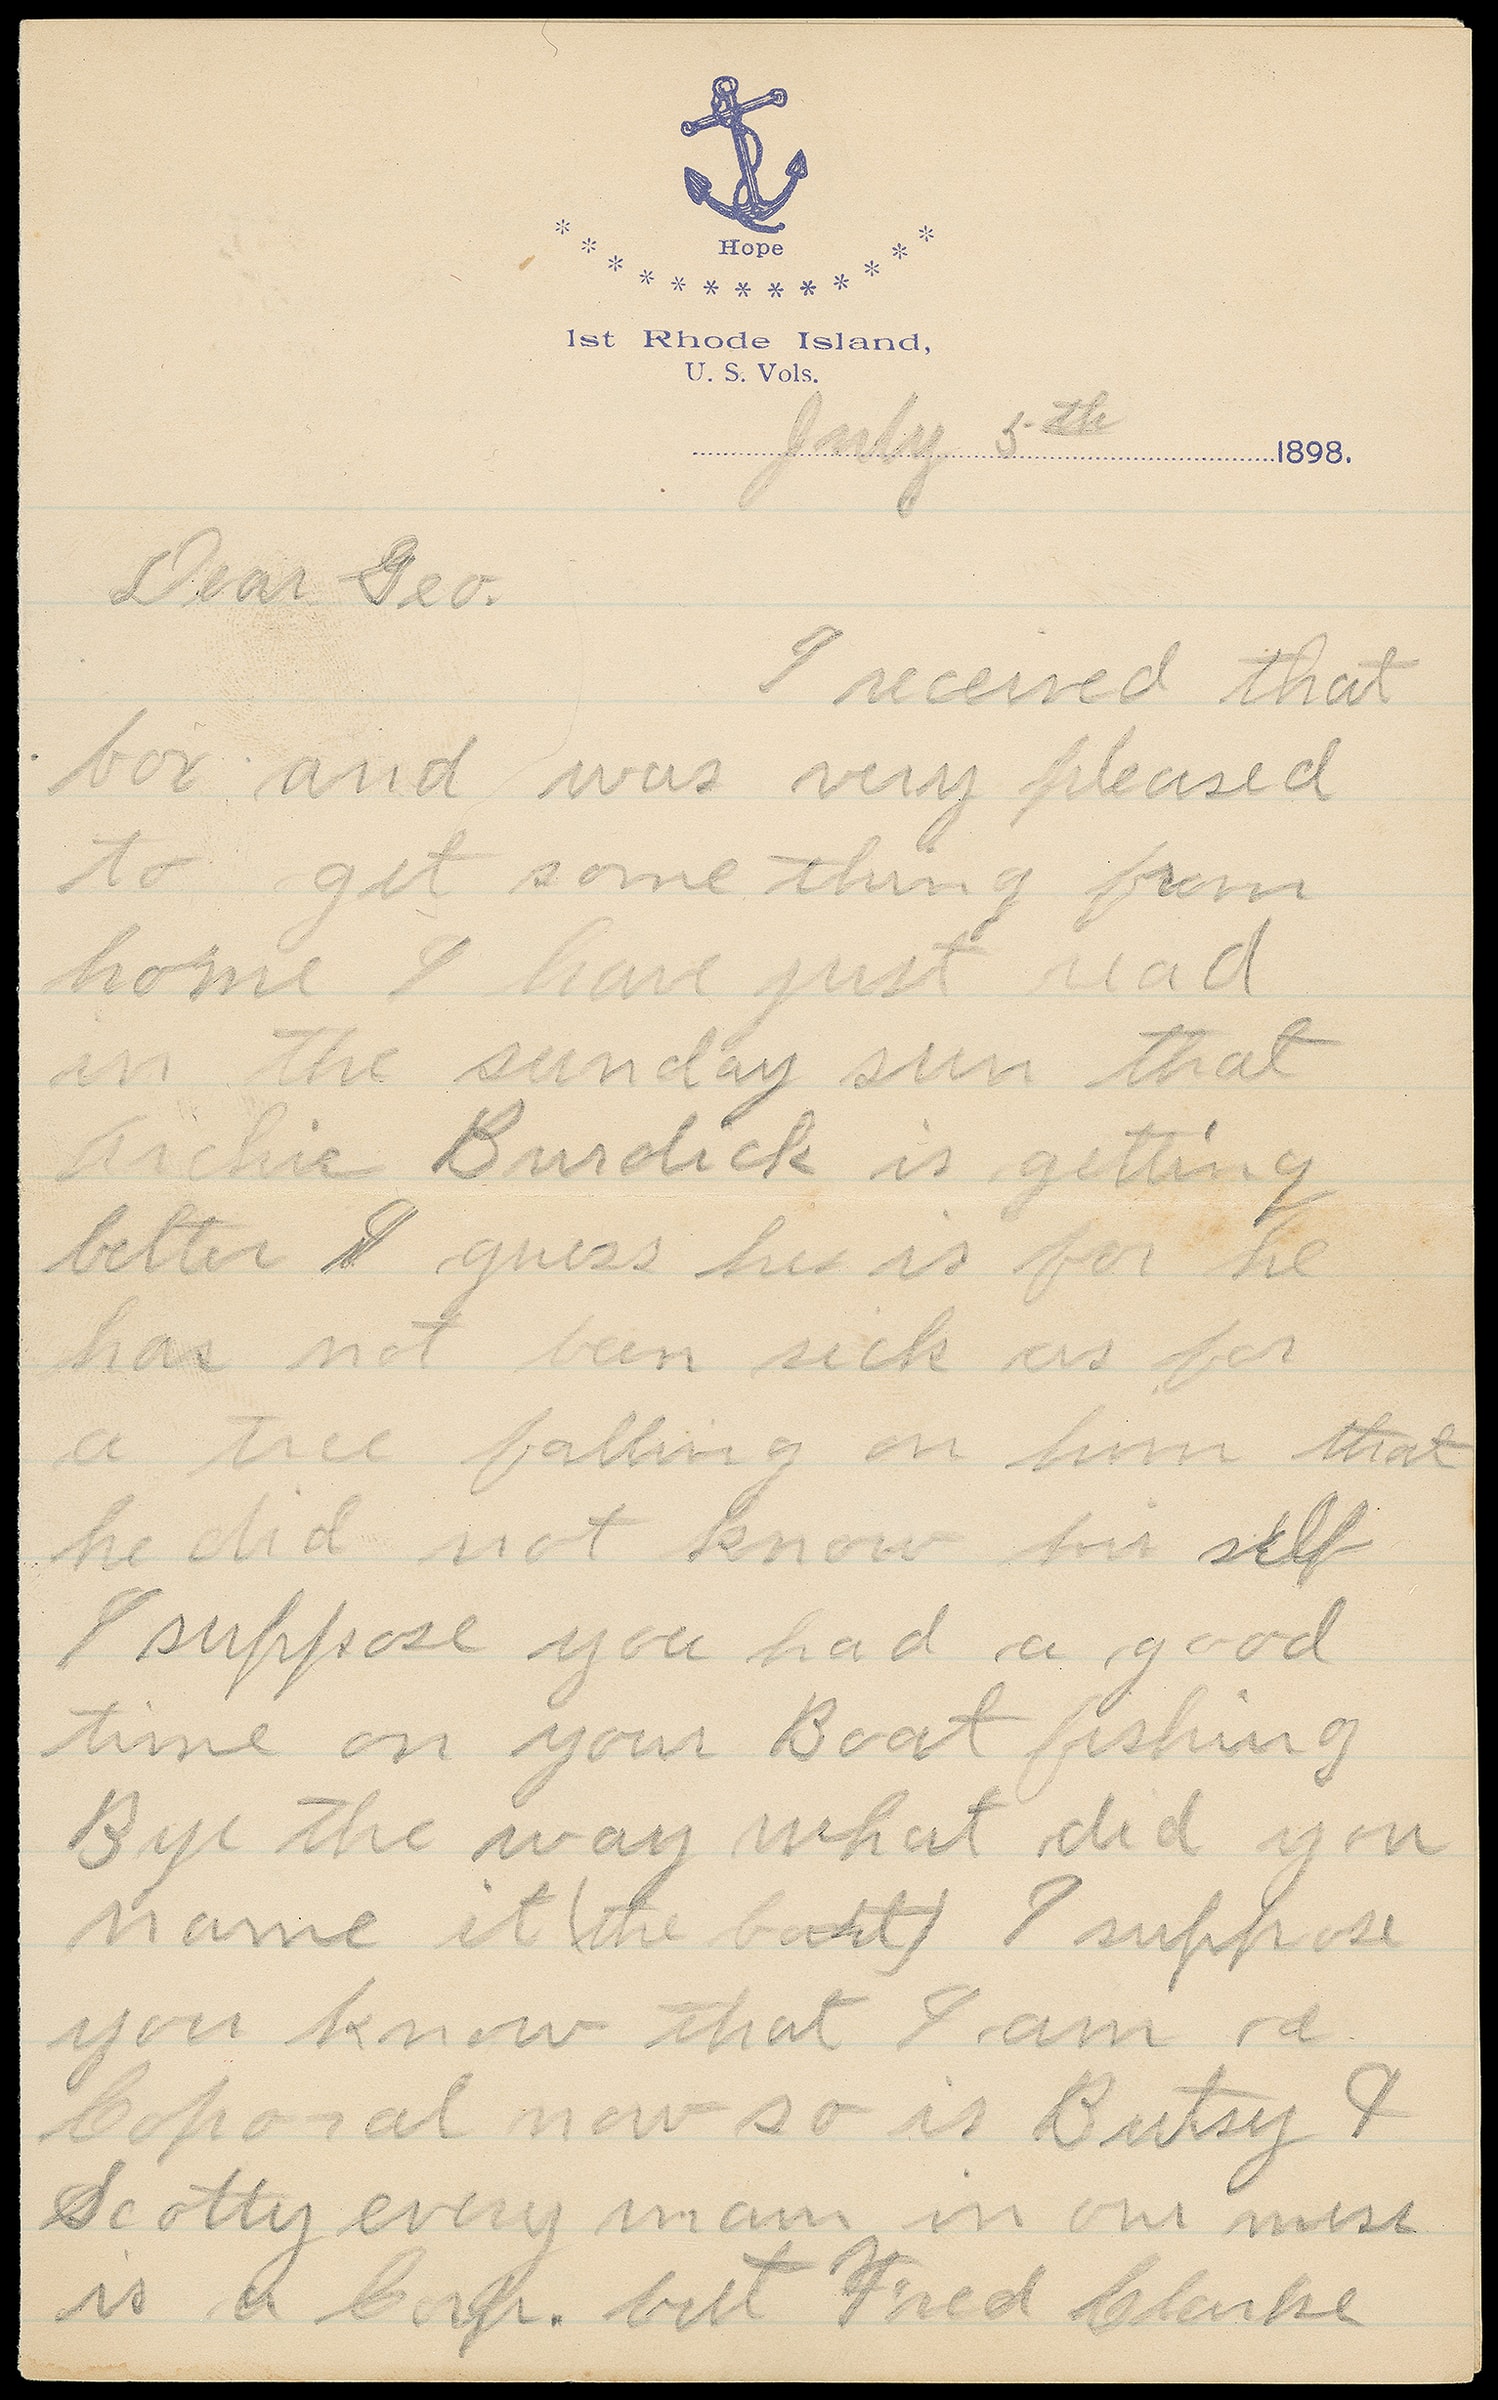 Hope
1st Rhode Island,
U. S. Vols.
July 5th 1898.
Dear Geo.
I received that
box and was very pleased
to get some thing from
home I have just read
in the sunday sun that
Archie Burdick is getting
better I guess he is for he
has not been sick as for
a tree falling on him that
he did not know his self
I suppose you had a good
time on your Boat fishing
Bye the way what did you
name it (the boat) I suppose
you know that I am a
Coporal now so is Butsy &
Scotty every man in our mess
is a Corp. but Fred Clarke